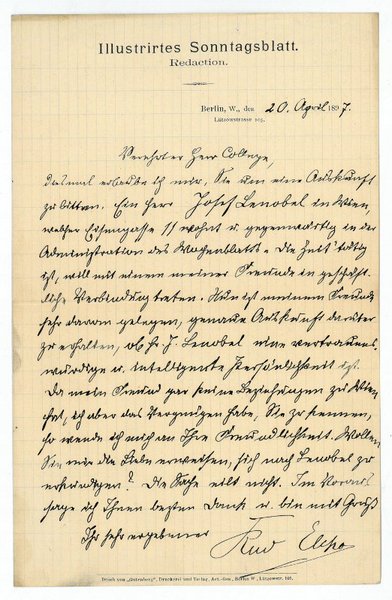 Illustrirtes Sonntagsblatt.
Redaction.
Berlin, W., den 20. April 1897.
Lützowstrasse 105.
Verehrter Herr College,
diesmal erlaube ich mir, Sie um eine Auskunft
zu bitten. Ein Herr Josef Lenobel in Wien,
welcher Eßlinggasse 11 wohnt u. gegenwärtig in der
Administration des Wochenblatts „Die Zeit" tätig
ist, will mit einem meiner Freunde in geschäft-
liche Verbindung treten. Nun ist meinem Freunde
sehr daran gelegen, genaue Auskunft darüber
zu erhalten, ob Hr J. Lenobel eine vertrauens-
würdige u. intelligente Persönlichkeit ist.
Da mein Freund gar keine Beziehungen zu Wien
hat, ich aber das Vergnügen habe, Sie zu kennen,
so wende ich mich an Ihre Freundlichkeit. Wollen
Sie mir die Liebe erweisen, sich nach Lenobel zu
erkundigen? Die Sache eilt nicht. Im Voraus
sage ich Ihnen besten Dank u. bin mit Gruß
Ihr sehr ergebener
Rud Elcho
Druck von „Gutenberg", Druckerei und Verlag, Act.-Ges., Berlin W., Lützowstr. 105.